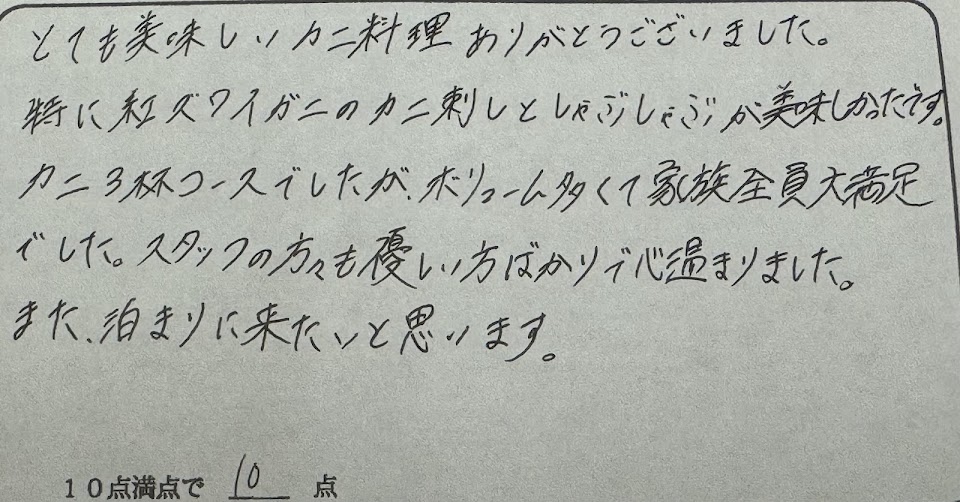 とても美味しいカニ料理ありがとうございました。
特に紅ズワイガニのカニ刺しとしゃぶしゃぶが美味しかったです。
カニ3杯コースでしたが、ボリューム多くて家族全員大満足
でした。スタッフの方々も優しい方ばかりで心温まりました。
また、泊まりに来たいと思います。
10点満点で 10 点